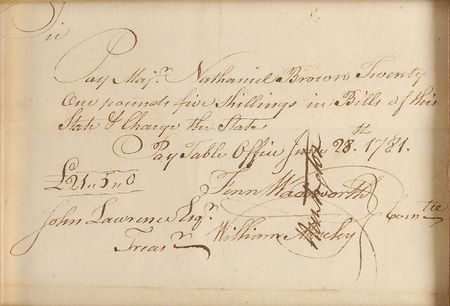 Sir
Pay Majr. Nathaniel Brown Twenty
One pounds five Shillings in Bills of this
State & Charge the State
Pay Table Office June 28th 1781.
£21.,5.,0
Fenn Wadsworth
John Lawrence Esqr.
Comtee
Treasr
William Moseley